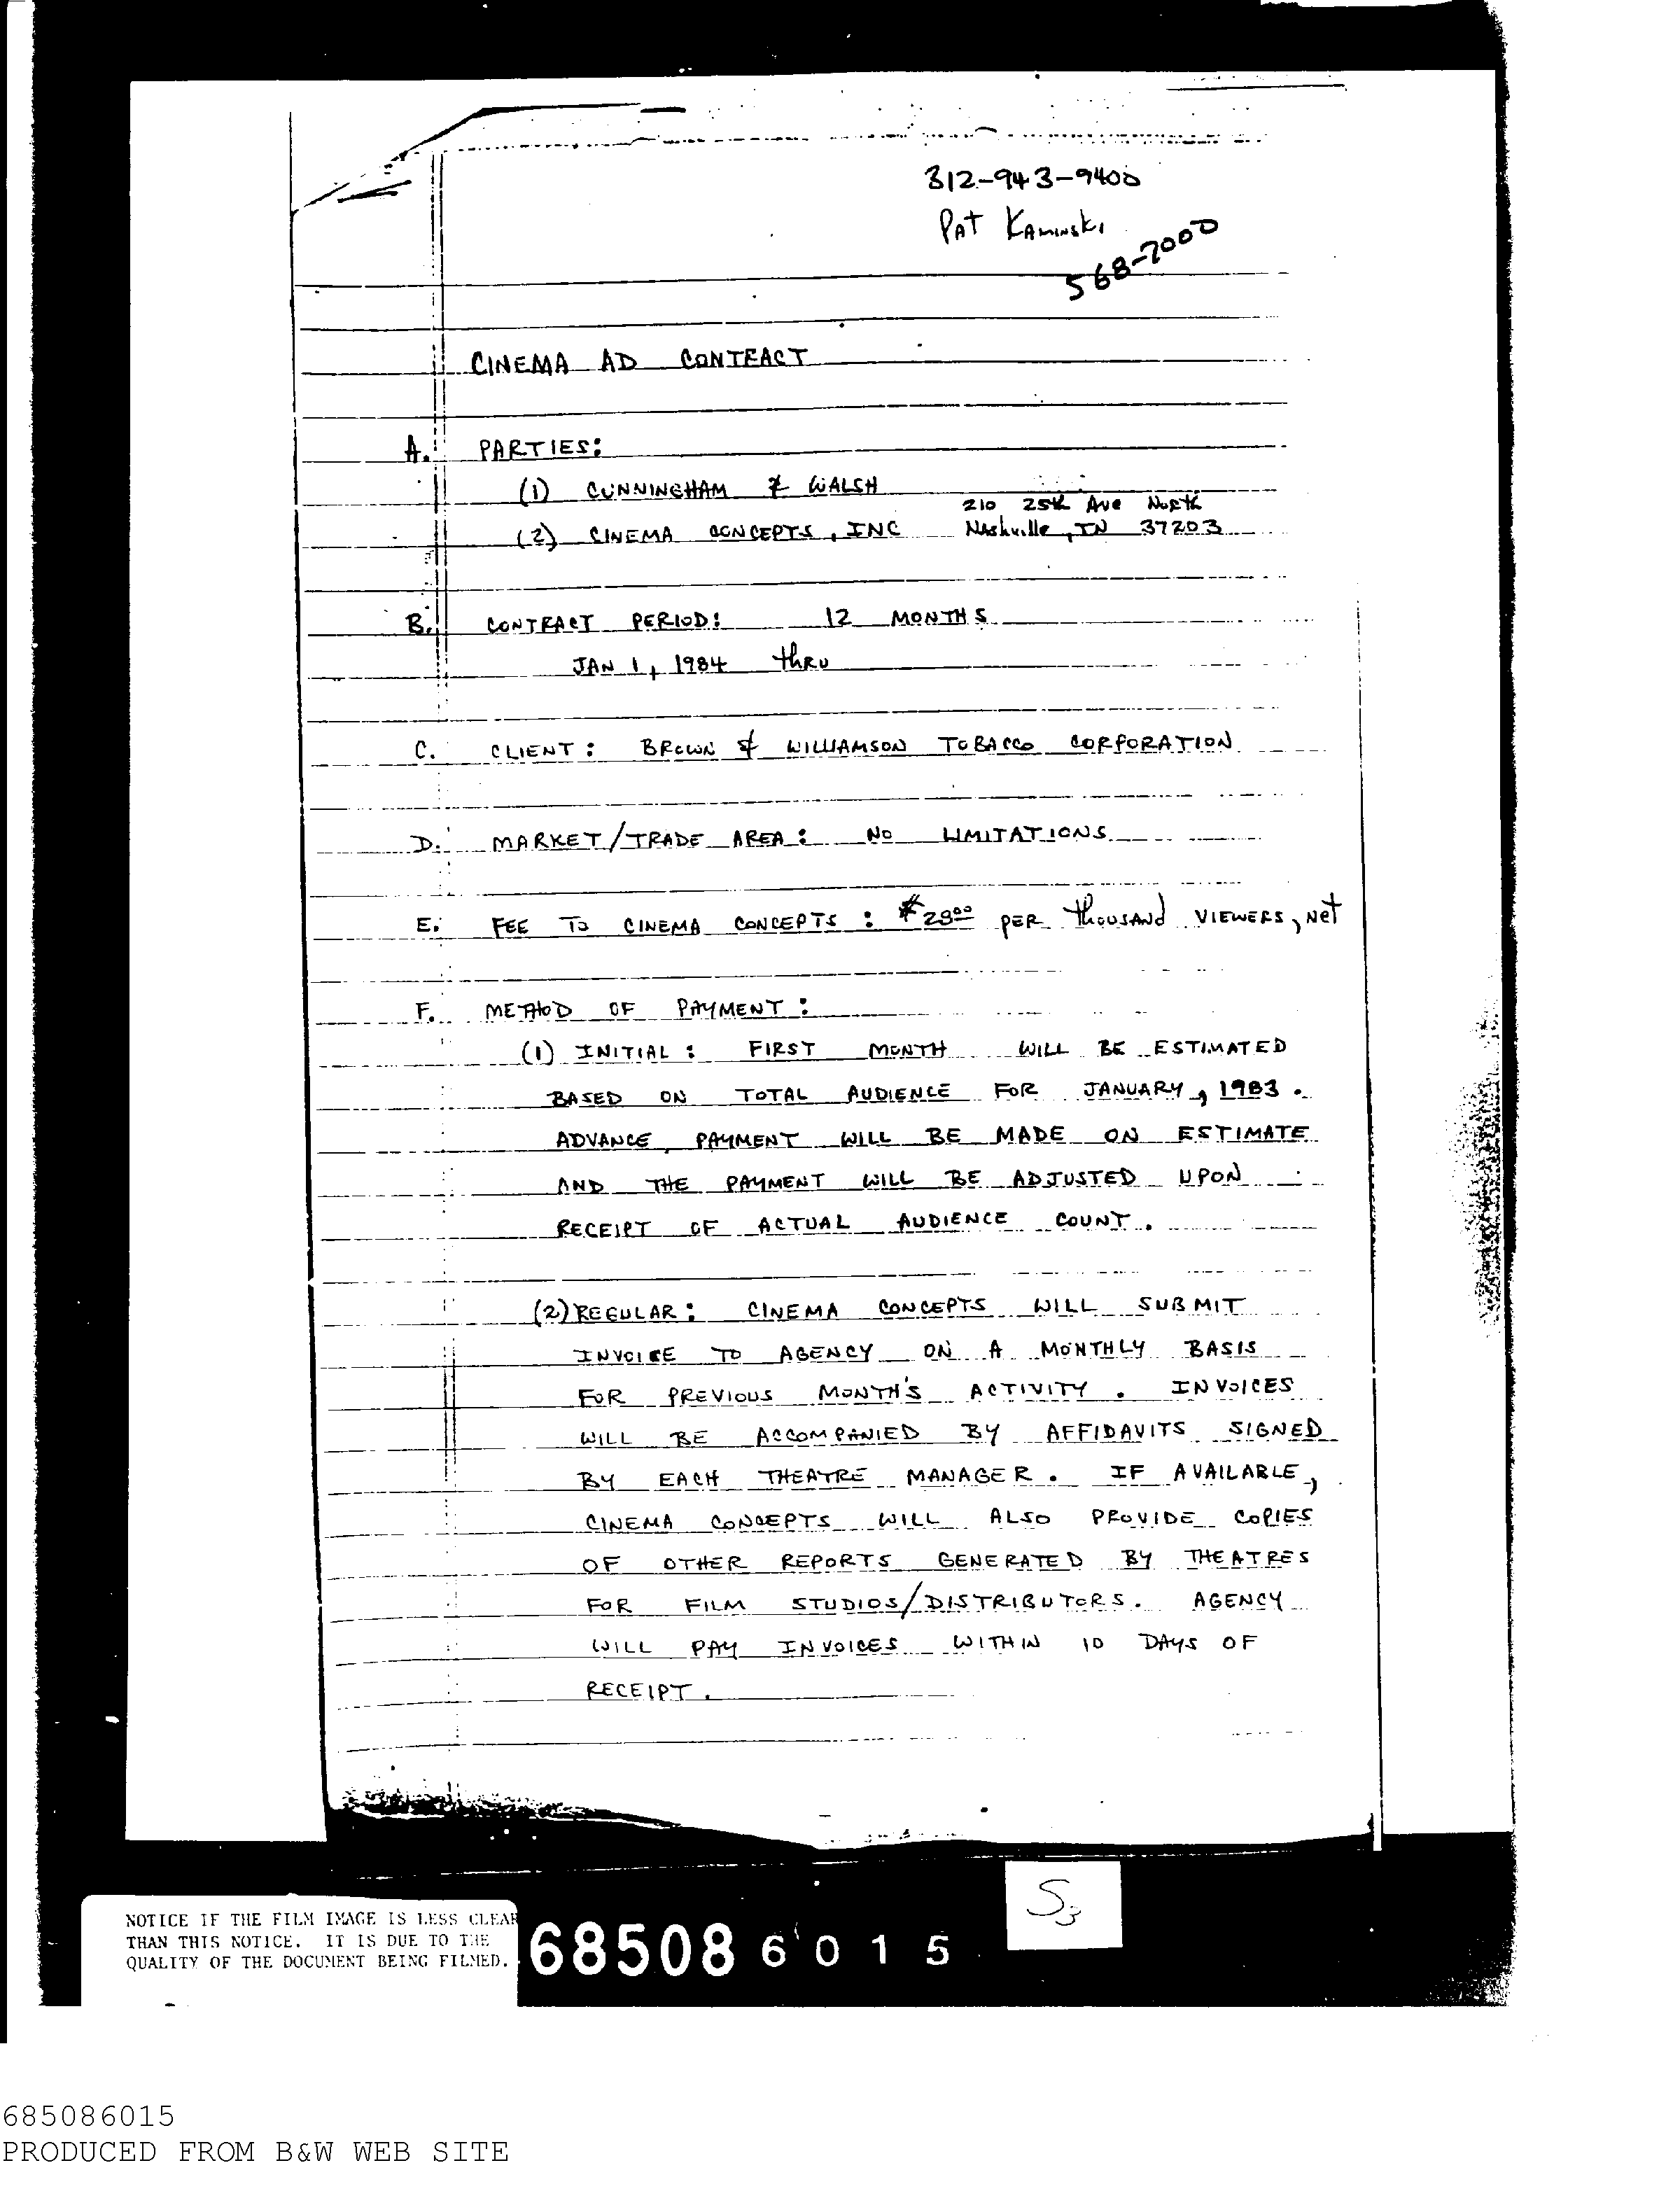 312-943-9400
Pat Kaminski
568-7000
CINEMA AD CONTRACT
A. PARTIES:
(1) CUNNINGHAM & WALSH
210 25th Ave North
(2) CINEMA CONCEPTS, INC Nashville, TN 37203
B. CONTRACT PERIOD: 12 MONTHS
JAN 1, 1984 thru
C. CLIENT: BROWN & WILLIAMSON TOBACCO CORPORATION
D. MARKET/TRADE AREA: NO LIMITATIONS
E. FEE TO CINEMA CONCEPTS: $28⁰⁰ PER thousand VIEWERS, Net
F. METHOD OF PAYMENT:
(1) INITIAL: FIRST MONTH WILL BE ESTIMATED
BASED ON TOTAL AUDIENCE FOR JANUARY, 1983.
ADVANCE PAYMENT WILL BE MADE ON ESTIMATE
AND THE PAYMENT WILL BE ADJUSTED UPON
RECEIPT OF ACTUAL AUDIENCE COUNT.
(2) REGULAR: CINEMA CONCEPTS WILL SUBMIT
INVOICE TO AGENCY ON A MONTHLY BASIS
FOR PREVIOUS MONTH'S ACTIVITY. INVOICES
WILL BE ACCOMPANIED BY AFFIDAVITS SIGNED
BY EACH THEATRE MANAGER. IF AVAILABLE,
CINEMA CONCEPTS WILL ALSO PROVIDE COPIES
OF OTHER REPORTS GENERATED BY THEATRES
FOR FILM STUDIOS/DISTRIBUTORS. AGENCY
WILL PAY INVOICES WITHIN 10 DAYS OF
RECEIPT.
S3
NOTICE IF THE FILM IMAGE IS LESS CLEAR
THAN THIS NOTICE. IT IS DUE TO THE
QUALITY OF THE DOCUMENT BEING FILMED.
68508 6015
685086015
PRODUCED FROM B&W WEB SITE